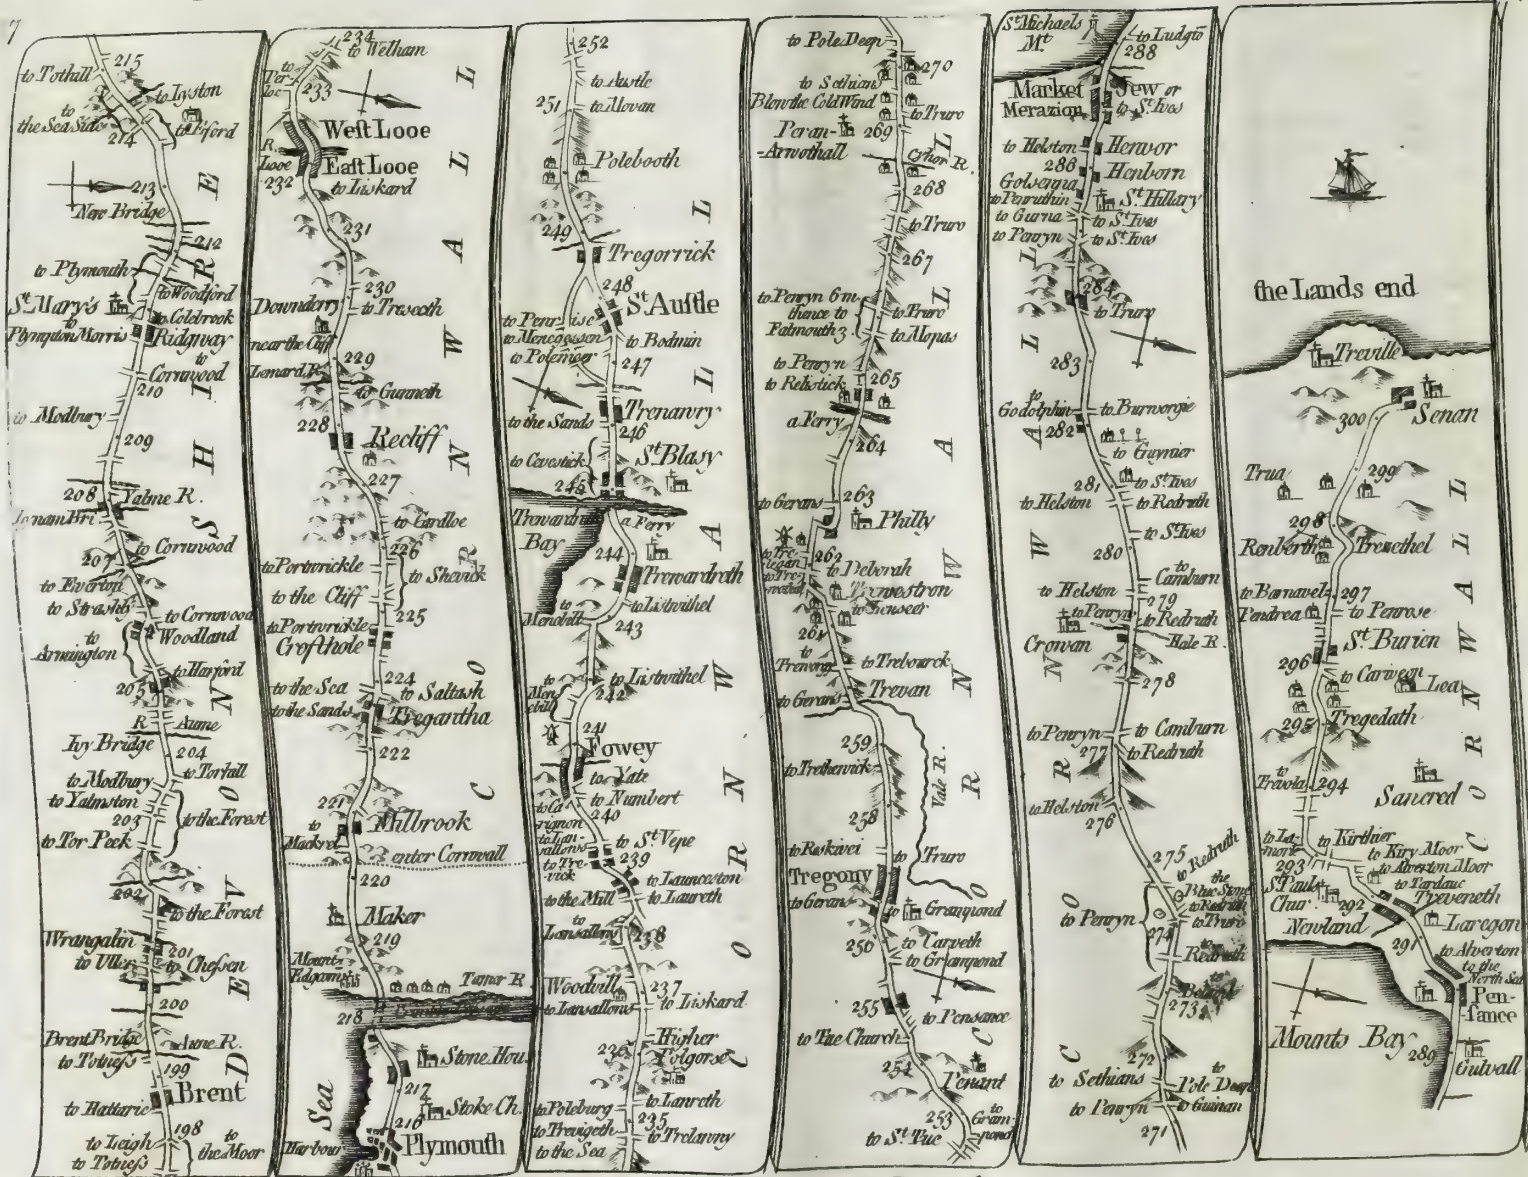 7
215
to Tothill
to Lyston
to the Sea Side
to Efford
214
213
New Bridge
212
to Plymouth
to Woodford
St. Mary's
to Colebrook
to Plympton Morris
Ridgway
to Cornwood
210
to Modbury
209
208
Yalme R.
207
to Cornwood
to Everton
to Cornwood
Woodland
to Armington
to Harford
205
R Aume
Ivy Bridge
204
to Torfall
to Modbury
to Yalmston
203
to the Forest
to Tor Peek
202
to the Forest
Wrangalin
201
to Cheſsen
200
Brent Bridge
Aune R.
to Totneſs
199
Brent
to Hattaric
198
to Leigh
to the Moor
to Totneſs
DEVONSHIRE
234
to Welham
233
Weſt Looe
R. Looe
Eaſt Looe
232
to Liskard
231
230
Downderry
to Treseeth
near the Cliff
229
Lemard R.
to Gunneth
228
Recliff
227
to Cardloe
226
to Portwrickle
to Shevick
to the Cliff
225
to Portwrickle
Croſthole
224
to the Sea
to Saltash
to the Sands
Tregantha
222
221
to Mackrel
Milbrook
enter Cornwall
220
Maker
219
Mount Edgcom
Tamar R
218
Stone Hou.
217
Stoke Ch.
216
Sea
Harbour
Plymouth
CORNWALL
252
to Austle
251
to Movan
Polebooth
249
Tregorrick
248
St. Auſtle
to Bodmin
to Polemeer
247
Trenawry
to the Sands
246
to Cevestick
St. Blasy
245
Trewardreth Bay
a Ferry
244
Trewardreth
to Listwithel
to Menabill
243
to Listwithel
242
to Menebill
241
Fowey
to Yate
to Numbert
240
to Carignon
to Lansallows
to St. Vepe
to Trevick
239
to Launceston
to the Mill
to Laureth
to Lansallows
238
Woodvill
237
to Lansallows
to Liskard
236
Higher Polgorse
to Lanreth
to Poleburg
235
to Trevigeth
to Trelanny
to the Sea
CORNWALL
to Pole Deep
270
to Sethians
Blow the Cold Wind
to Truro
269
Peran-Arwothall
268
to Truro
267
to Penryn 6 m.
thence to
Falmouth 3
to Truro
to Mopas
to Penryn
265
to Relistick
a Ferry
264
263
to Gerans
Philly
262
to Deborah
261
to Trewong
to Trebourck
Trevan
to Gerans
259
to Trethewick
Vale R.
258
to Reskivei
to Truro
Tregony
to Gerans
to Grampond
256
to Carveth
to Grampond
255
to Pensance
to Tue Church
254
Penant
253
to Grampond
to St. Tue
CORNWALL
St. Michaels Mt.
to Ludgto
288
Market Merazion
Jew or
to St. Ives
to Helston
Herwor
286
Henborn
Golsenna
to Penruthin
St. Hillary
to Gurna
to St. Ives
to Penryn
to St. Ives
284
to Truro
283
to Godolphin
to Burworgie
282
to Guynier
281
to St. Ives
to Helston
to Redruth
to St. Ives
280
to Camburn
to Helston
279
to Penryn
to Redruth
Crowan
Hale R.
278
to Penryn
to Camburn
277
to Redruth
to Helston
276
275
to Redruth
the Blue Stone
to Redruth
to Penryn
to Truro
274
to Redruth
273
272
to Sethians
to Pole Deep
to Penryn
to Guinan
271
CORNWALL
the Lands end
Treville
Senan
300
Trua
299
298
Renberth
Trenethel
to Barnavel
297
Pendrea
to Penrose
St. Burien
296
to Carweon
Lea
Tregedath
295
to Trevola
294
Sancred
to Lamorne
to Kirthier
to Kiry Moor
293
to Alverton Moor
to Tardauc
St. Pauls Chur.
292
Treveneth
Newland
Laregon
291
to Alverton
to the North Sea
Penſance
Mounts Bay
289
Gulvall
CORNWALL